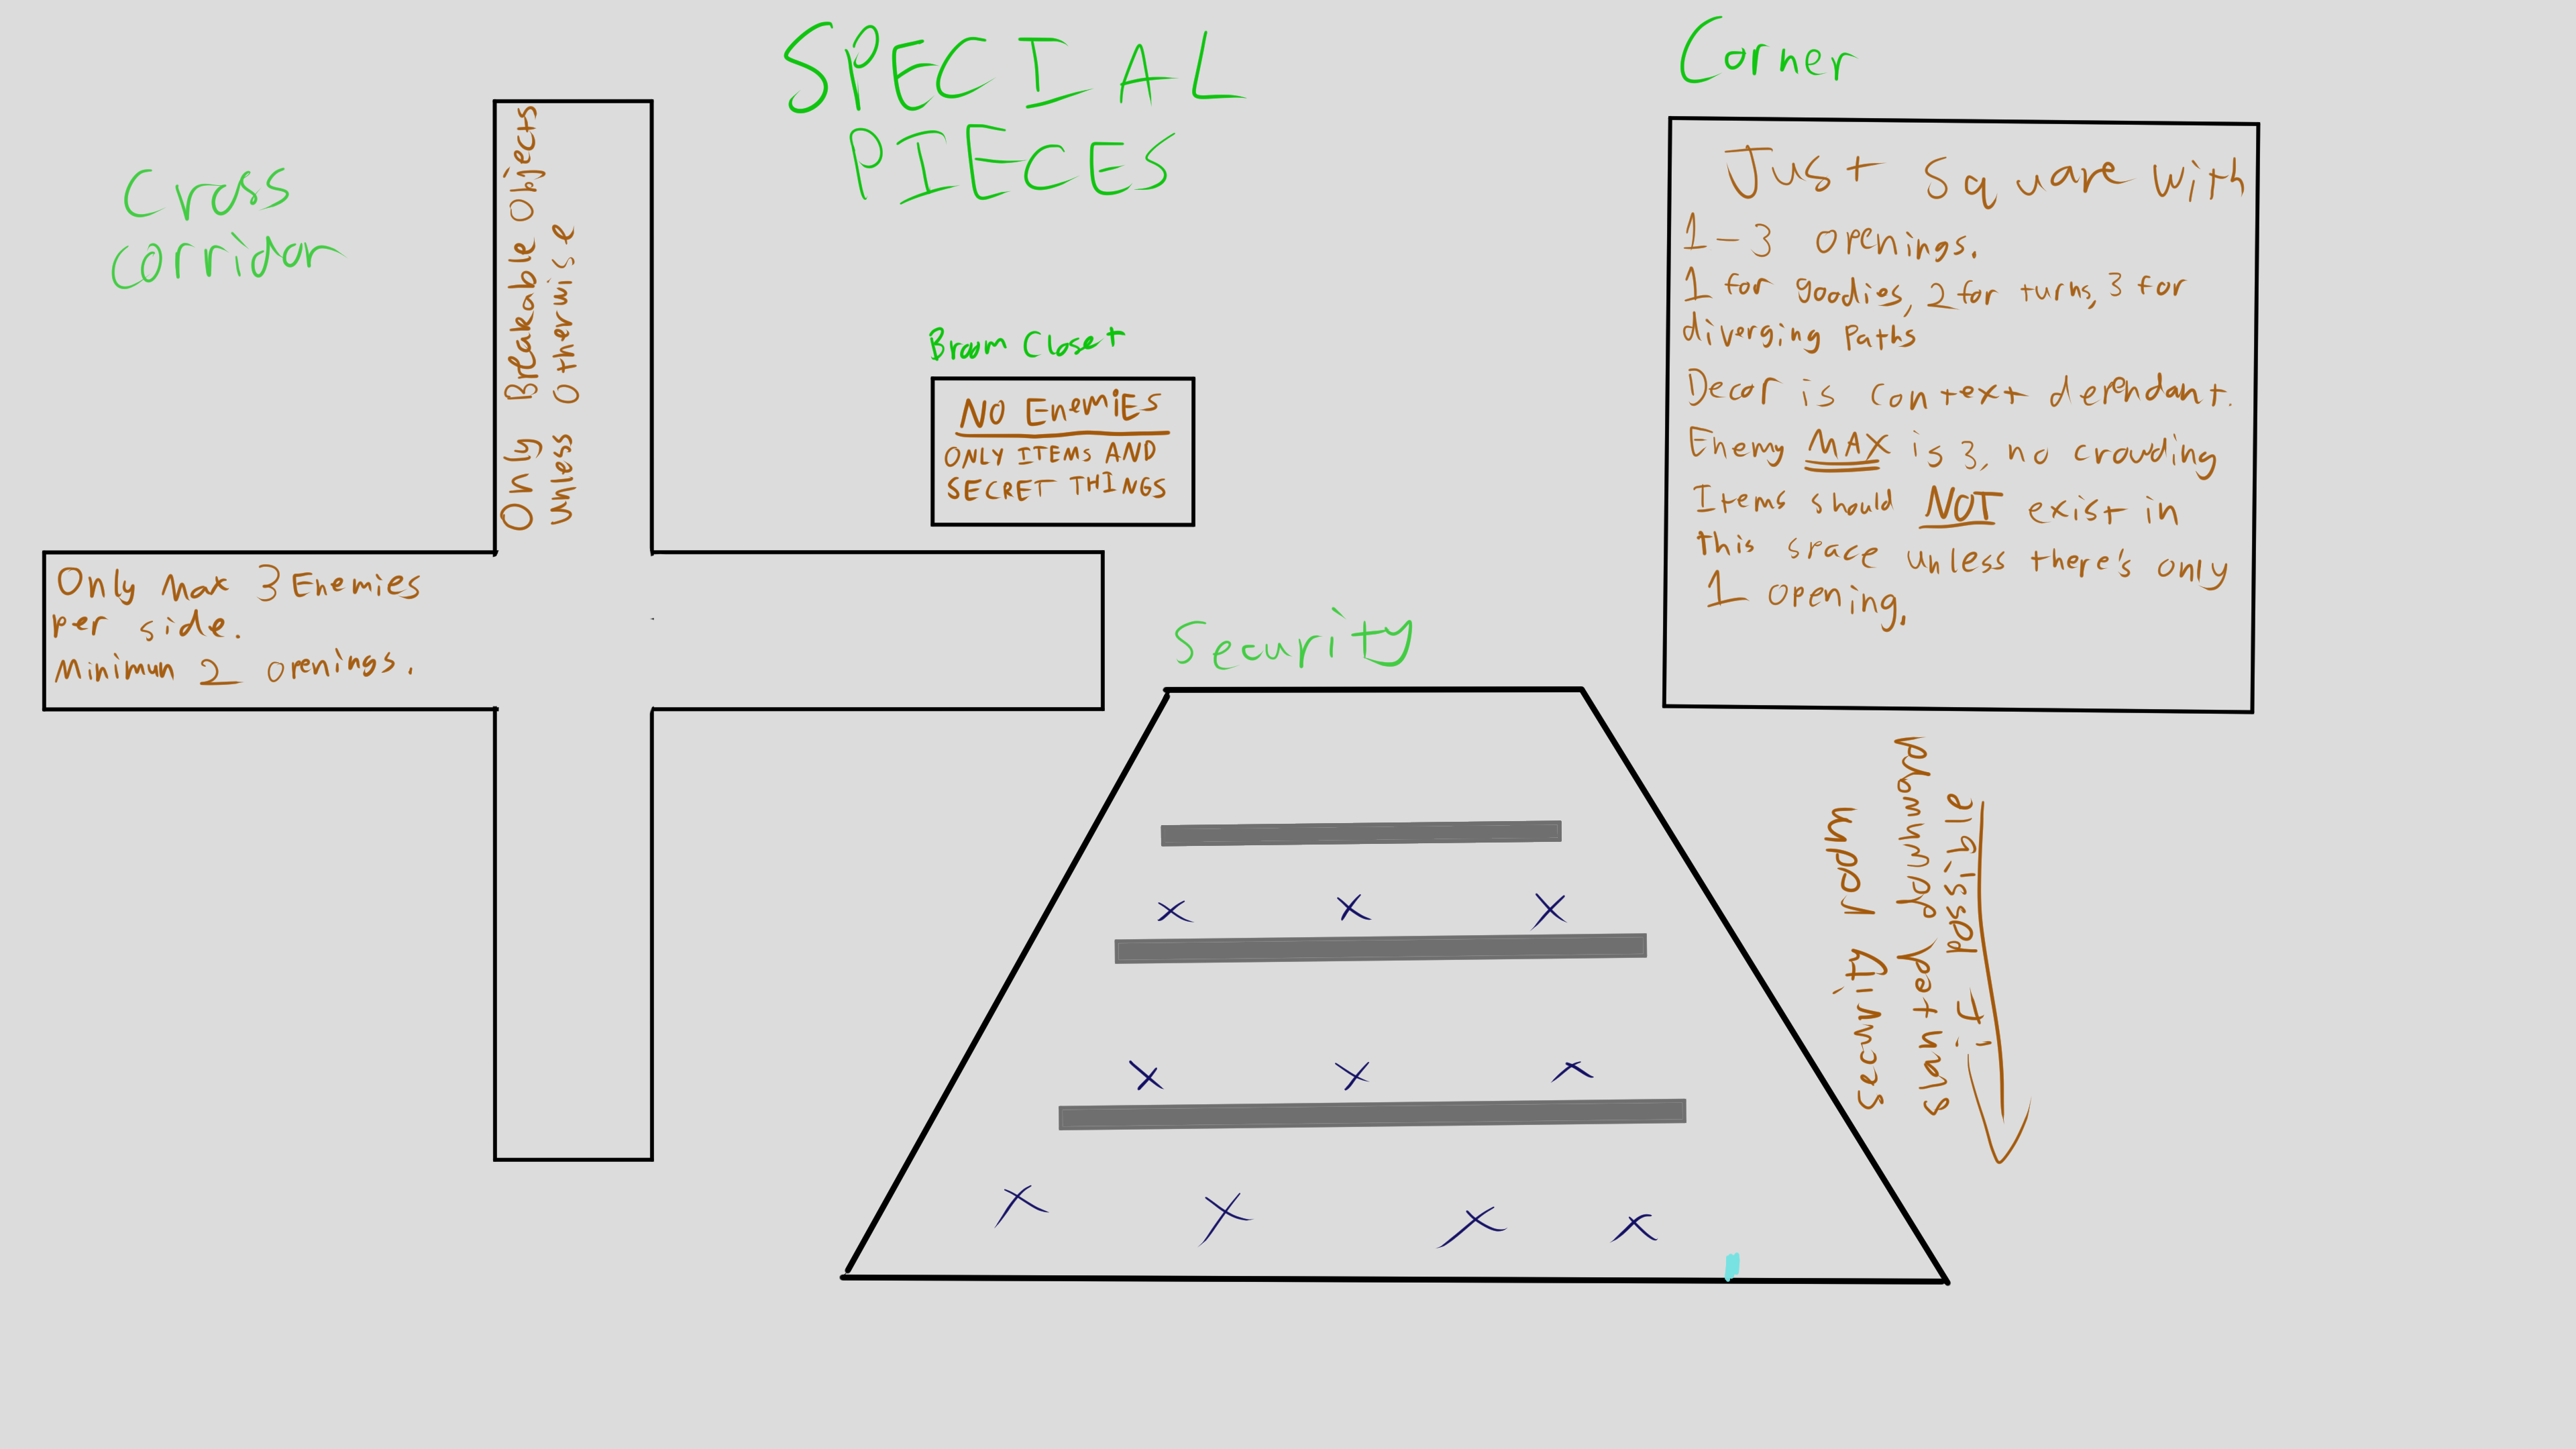 SPECIAL
PIECES
Cross
corridor
Only Breakable Objects
unless Otherwise
Only Max 3 Enemies
per side.
Minimun 2 openings.
Broom Closet
NO EnemiES
ONLY ITEMs AND
SECRET THINGS
Corner
Just Square with
1-3 openings.
1 for goodies, 2 for turns, 3 for
diverging Paths
Decor is context dependant.
Enemy MAX is 3, no crowding
Items should NOT exist in
this space unless there's only
1 opening.
Security
security room
slanted downward
if possible